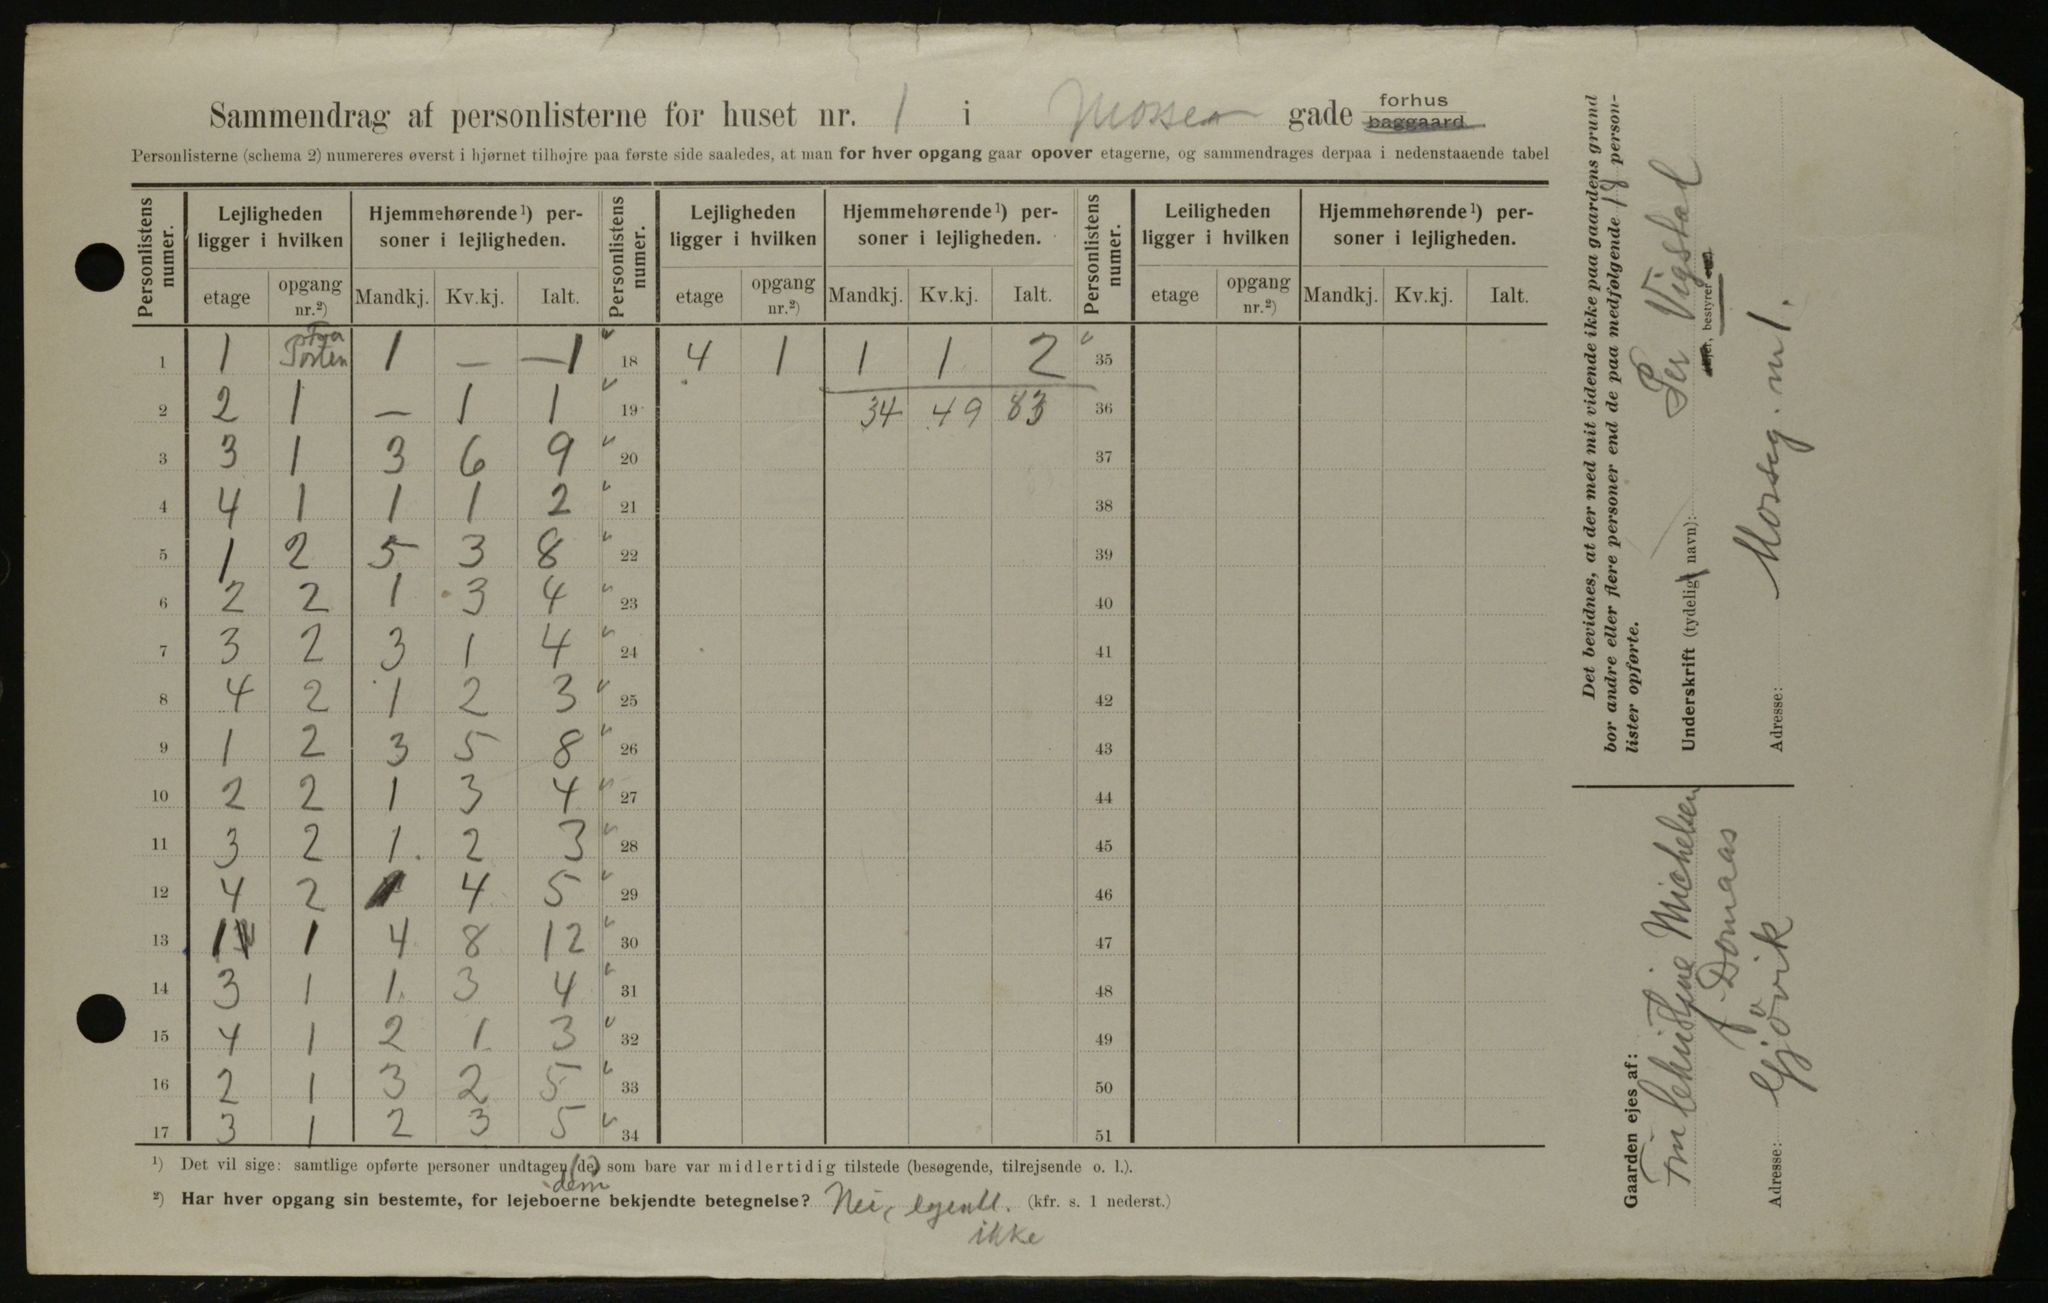 Sammendrag af personlisterne for huset nr. 1 i Mosse gade forhus baggaard
Personlisterne (schema 2) numereres øverst i hjørnet tilhøjre paa første side saaledes, at man for hver opgang gaar opover etagerne, og sammendrages derpaa i nedenstaaende tabel
Personlistens numer. Lejligheden ligger i hvilken Hjemmehørende¹) personer i lejligheden. Personlistens numer. Lejligheden ligger i hvilken Hjemmehørende¹) personer i lejligheden. Personlistens numer. Leiligheden ligger i hvilken Hjemmehørende¹) personer i lejligheden.
etage opgang nr.²) Mandkj. Kv.kj. Ialt. etage opgang nr.²) Mandkj. Kv.kj. Ialt. etage opgang nr.²) Mandkj. Kv.kj. Ialt.
1 1 Porten 1 — — 1 18 4 1 1 1 2 35
2 2 1 — 1 1 19 34 49 83 36
3 3 1 3 6 9 20 37
4 4 1 1 1 2 21 38
5 1 2 5 3 8 22 39
6 2 2 1 3 4 23 40
7 3 2 3 1 4 24 41
8 4 2 1 2 3 25 42
9 1 2 3 5 8 26 43
10 2 2 1 3 4 27 44
11 3 2 1 2 3 28 45
12 4 2 1 4 5 29 46
13 1 1 4 8 12 30 47
14 3 1 1 3 4 31 48
15 4 1 2 1 3 32 49
16 2 1 3 2 5 33 50
17 3 1 2 3 5 34 51
¹) Det vil sige: samtlige opførte personer undtagen (de) som bare var midlertidig tilstede (besøgende, tilrejsende o. l.).
dem
²) Har hver opgang sin bestemte, for lejeboerne bekjendte betegnelse? Nei, egentl. (kfr. s. 1 nederst.)
ikke
Det bevidnes, at der med mit vidende ikke paa gaardens grund
bor andre eller flere personer end de paa medfølgende 18 person-
lister opførte.
Underskrift (tydeligt navn): Per Vigstad
ejer, bestyrer
Adresse: Mosseg. nr 1.
Gaarden ejes af:
Michelsen
Domaas
Adresse: Gjövik